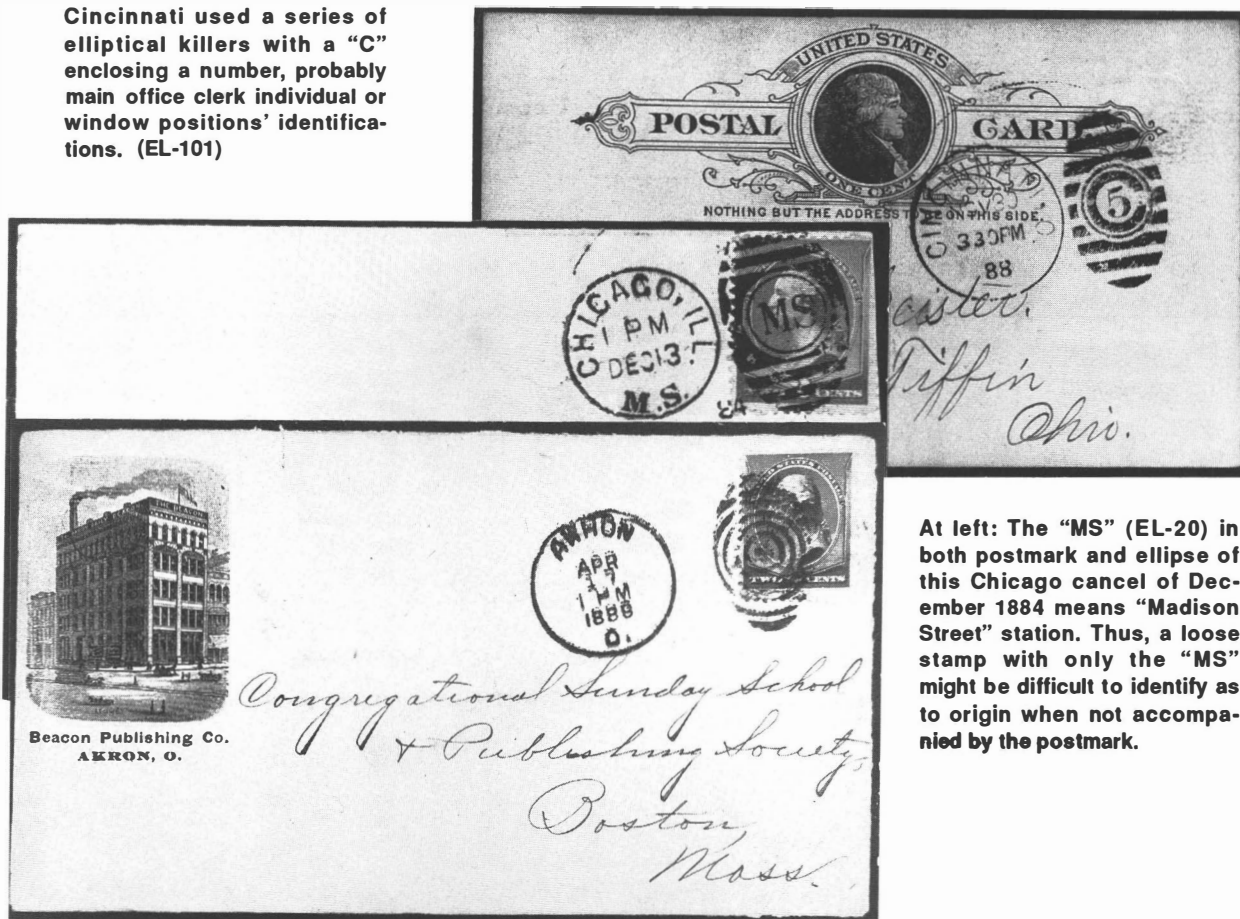 Cincinnati used a series of
elliptical killers with a “C”
enclosing a number, probably
main office clerk individual or
window positions’ identifica-
tions. (EL-101)
UNITED STATES
POSTAL CARD
ONE CENT
NOTHING BUT THE ADDRESS TO BE ON THIS SIDE.
CINCINNATI, O.
330PM
88
5
Tiffin
Ohio.
CHICAGO, ILL
1 PM
DEC13
M.S.
MS
CENTS
THE BEACON
Beacon Publishing Co.
AKRON, O.
AKRON
APR
1 PM
1888
O.
TWO CENTS
Congregational Sunday School
+ Publishing Society,
Boston,
Mass.
At left: The “MS” (EL-20) in
both postmark and ellipse of
this Chicago cancel of Dec-
ember 1884 means “Madison
Street” station. Thus, a loose
stamp with only the “MS”
might be difficult to identify as
to origin when not accompa-
nied by the postmark.